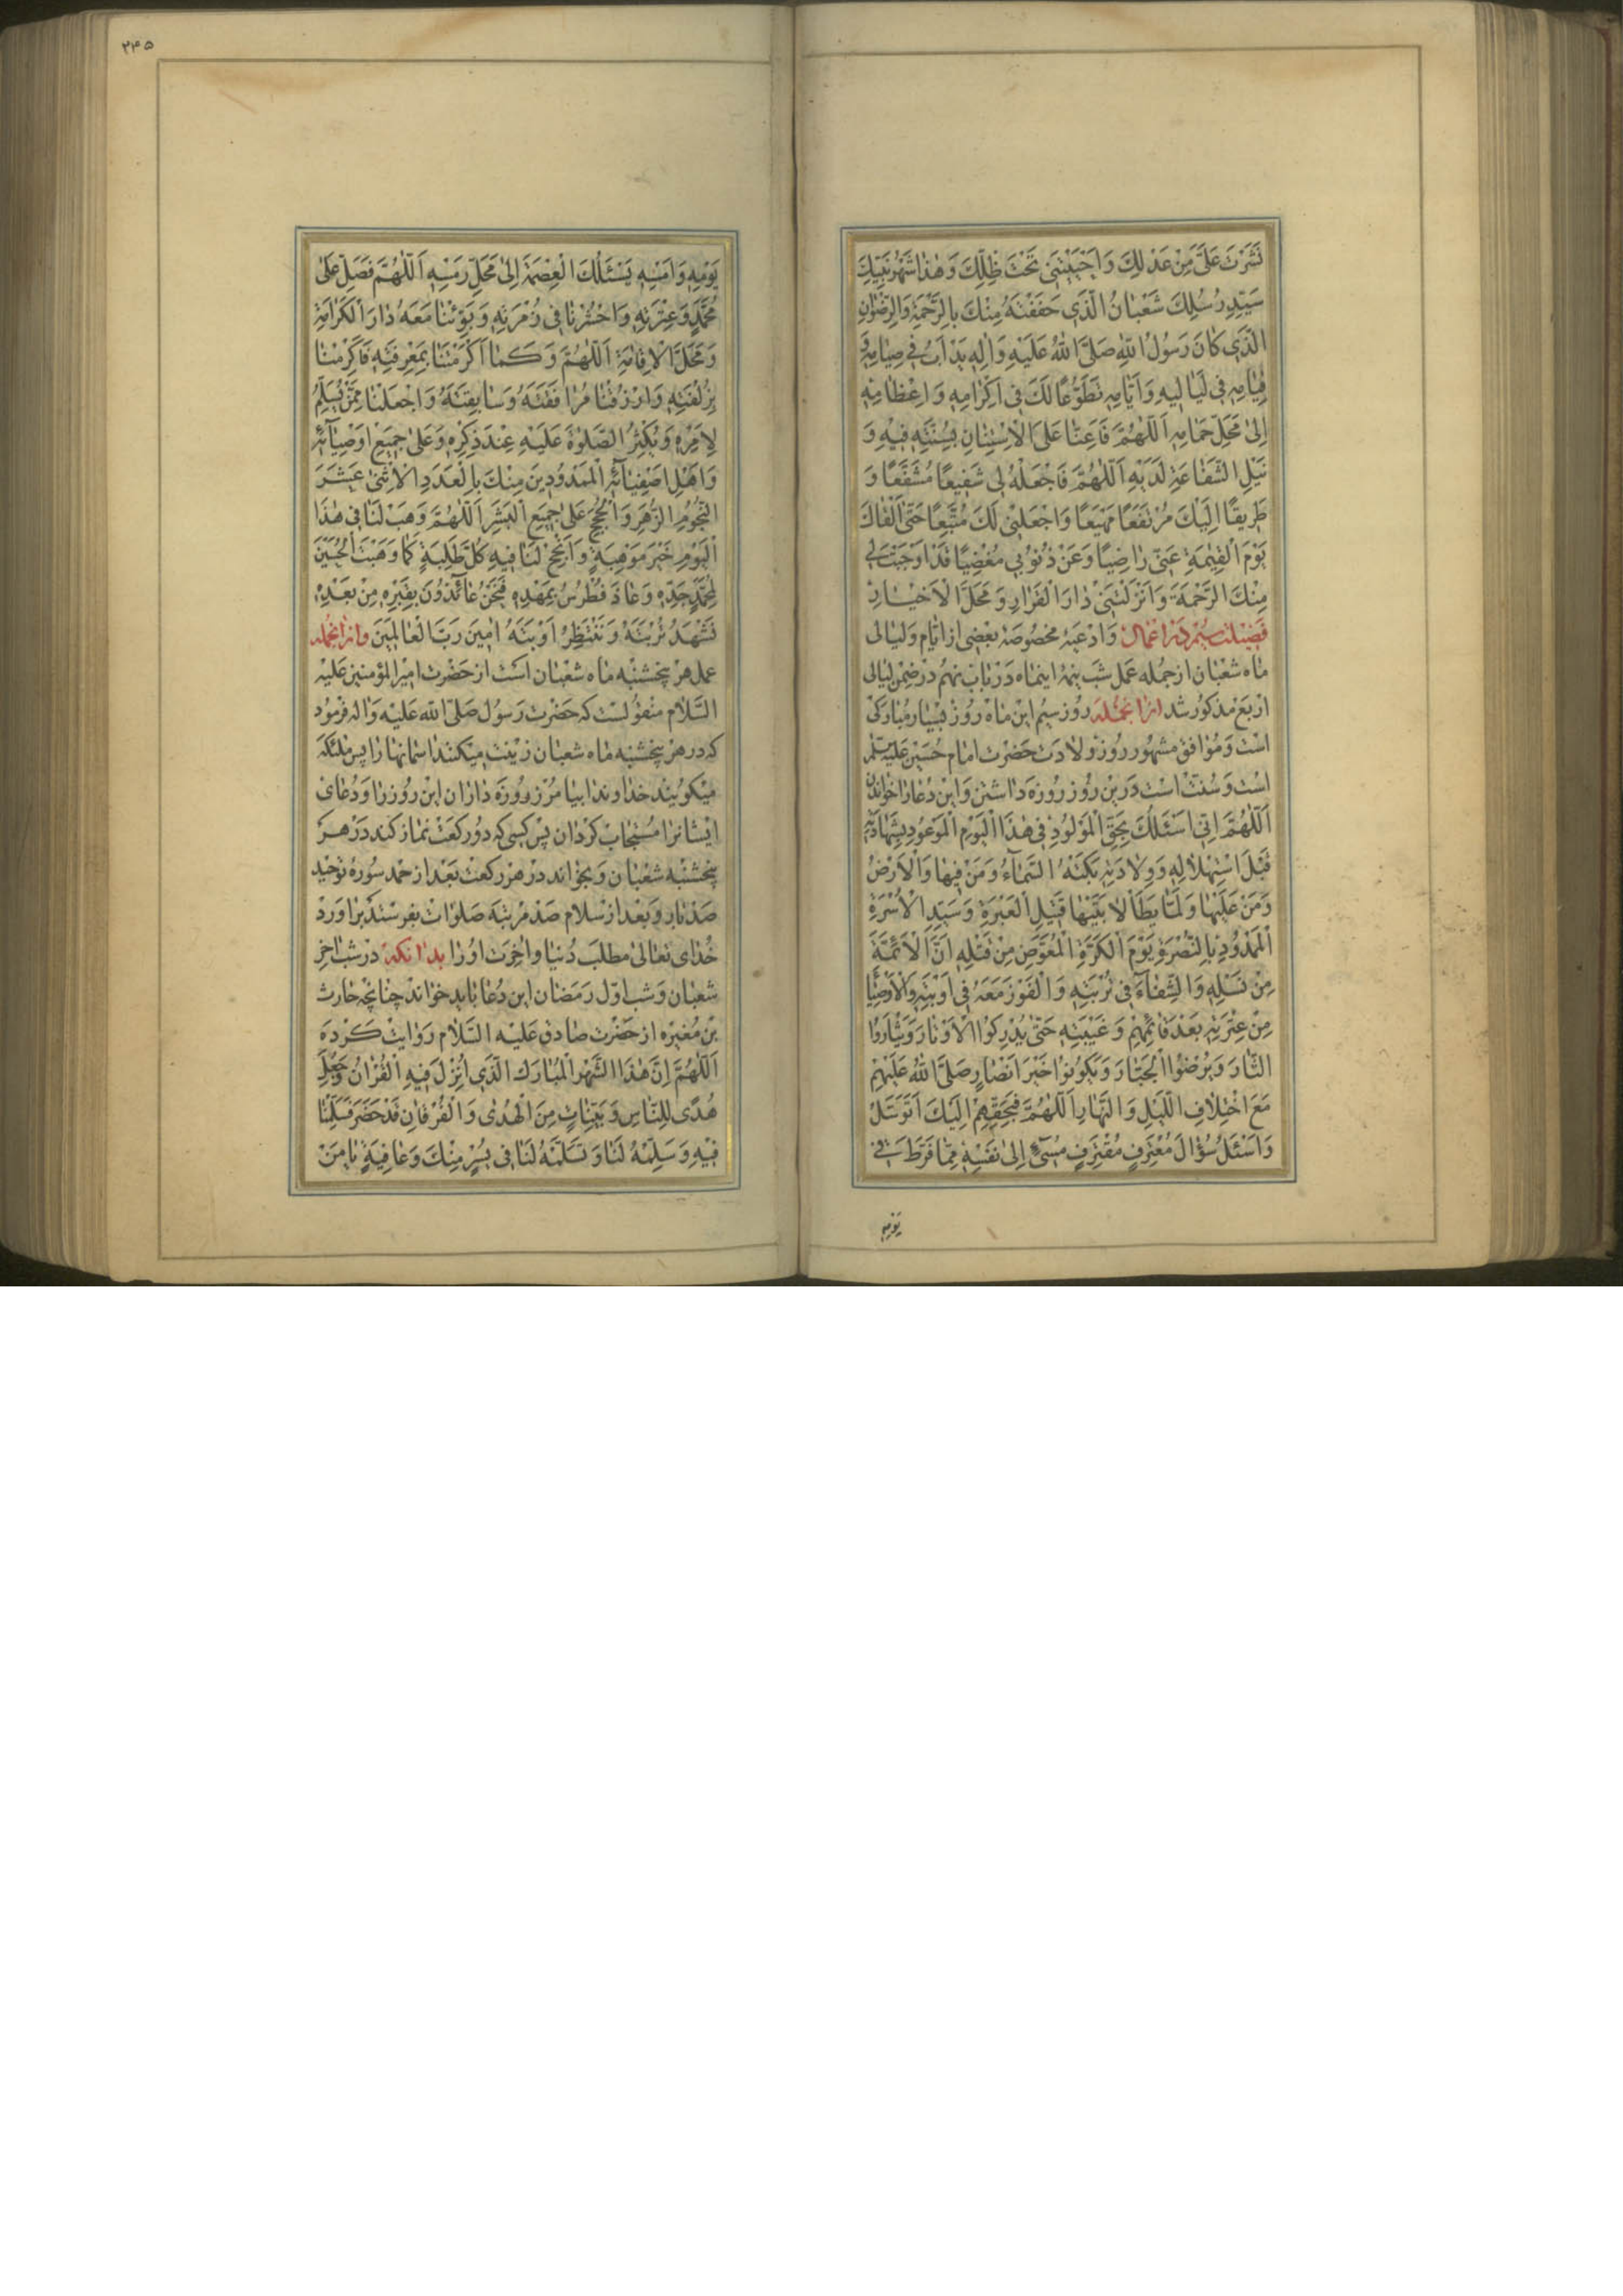 نَشَرْتَ عَلَيَّ مِنْ عَدْلِكَ وَاَجْنَيْتَنِي تَحْتَ ظِلِّكَ وَهٰذَا شَهْرُ نَبِيِّكَ
سَيِّدِ رُسُلِكَ شَعْبٰانُ الَّذِي حَفَفْتَهُ مِنْكَ بِالرَّحْمَةِ وَالرِّضْوٰانِ
الَّذِي كٰانَ رَسُولُ اللّٰهِ صَلَّى اللّٰهُ عَلَيْهِ وَاٰلِهِ يَدْاَبُ فِي صِيٰامِهِ وَ
قِيٰامِهِ فِي لَيٰالِيهِ وَاَيّٰامِهِ تَطَوُّعًا لَكَ فِي اِكْرٰامِهِ وَاِعْظٰامِهِ
اِلىٰ مَحَلِّ حِمٰامِهِ اَللّٰهُمَّ فَاَعِنّٰا عَلَى الْاِسْتِنٰانِ بِسُنَّتِهِ فِيهِ وَ
نَيْلِ الشَّفٰاعَةِ لَدَيْهِ اَللّٰهُمَّ فَاجْعَلْهُ لِي شَفِيعًا مُشَفَّعًا وَ
طَرِيقًا اِلَيْكَ مُرْتَفَعًا مَهْيَعًا وَاجْعَلْنِي لَكَ مُتَّبِعًا حَتّٰى اَلْقٰاكَ
يَوْمَ الْقِيٰمَةِ عَنِّي رٰاضِيًا وَعَنْ ذُنُوبِي مُغْضِيًا قَدْ اَوْجَبْتَ لِي
مِنْكَ الرَّحْمَةَ وَاَنْزَلْتَنِي دٰارَ الْقَرٰارِ وَمَحَلَّ الْاَخْيٰارِ
فَضِيلَتِ سِيُّم دَر اَعْمٰال وَادْعِيَهٔ مخصوصهٔ بَعْضِى از ايّام وَليٰالى
مٰاه شعبٰان از جمله عَمَل شَب نيمهٔ اينمٰاه دَر بٰاب نهُم دَر ضِمْن لَيٰالى
اربَع مَذكُور شد ازانجمله رُوز سِيُّم اين مٰاه رُوز بِسْيٰار مُبٰارَكى
اسْت وَمُوٰافِق مشهُور رُوز ولادت حَضْرت امٰام حُسَيْن عليه‌السّلم
است وَسُنّت است دَرين رُوز رُوزه دٰاشتن وَاين دُعٰا رٰا خوٰاندن
اَللّٰهُمَّ اِنِّي اَسْئَلُكَ بِحَقِّ الْمَوْلُودِ فِي هٰذَا الْيَوْمِ الْمَوْعُودِ بِشَهٰادَتِهِ
قَبْلَ اسْتِهْلٰالِهِ وَوِلٰادَتِهِ بَكَتْهُ السَّمٰآءُ وَمَنْ فِيهٰا وَالْاَرْضُ
وَمَنْ عَلَيْهٰا وَلَمّٰا يَطَأْ لٰابَتَيْهٰا قَتِيلِ الْعَبْرَةِ وَسَيِّدِ الْاُسْرَةِ
الْمَمْدُودِ بِالنُّصْرَةِ يَوْمَ الْكَرَّةِ الْمُعَوَّضِ مِنْ قَتْلِهِ اَنَّ الْاَئِمَّةَ
مِنْ نَسْلِهِ وَالشِّفٰآءَ فِي تُرْبَتِهِ وَالْفَوْزَ مَعَهُ فِي اَوْبَتِهِ وَالْاَوْصِيٰآءَ
مِنْ عِتْرَتِهِ بَعْدَ قٰائِمِهِمْ وَغَيْبَتِهِ حَتّٰى يُدْرِكُوا الْاَوْتٰارَ وَيَثْاَرُوا
الثّٰارَ وَيُرْضُوا الْجَبّٰارَ وَيَكُونُوا خَيْرَ اَنْصٰارٍ صَلَّى اللّٰهُ عَلَيْهِمْ
مَعَ اخْتِلٰافِ اللَّيْلِ وَالنَّهٰارِ اَللّٰهُمَّ فَبِحَقِّهِمْ اِلَيْكَ اَتَوَسَّلُ
وَاَسْئَلُ سُؤٰالَ مُعْتَرِفٍ مُقْتَرِفٍ مُسِيٓءٍ اِلىٰ نَفْسِهِ مِمّٰا فَرَّطَ فِي
يَوْمِهِ
٢٤٥
يَوْمِهِ وَاَمْسِهِ يَسْئَلُكَ الْعِصْمَةَ اِلىٰ مَحَلِّ رَمْسِهِ اَللّٰهُمَّ فَصَلِّ عَلىٰ
مُحَمَّدٍ وَعِتْرَتِهِ وَاحْشُرْنٰا فِي زُمْرَتِهِ وَبَوِّئْنٰا مَعَهُ دٰارَ الْكَرٰامَةِ
وَمَحَلَّ الْاِقٰامَةِ اَللّٰهُمَّ وَكَمٰا اَكْرَمْتَنٰا بِمَعْرِفَتِهِ فَاَكْرِمْنٰا
بِزُلْفَتِهِ وَارْزُقْنٰا مُرٰافَقَتَهُ وَسٰابِقَتَهُ وَاجْعَلْنٰا مِمَّنْ يُسَلِّمُ
لِاَمْرِهِ وَيُكْثِرُ الصَّلوٰةَ عَلَيْهِ عِنْدَ ذِكْرِهِ وَعَلىٰ جَمِيعِ اَوْصِيٰآئِهِ
وَاَهْلِ اَصْفِيٰآئِهِ الْمَمْدُودِينَ مِنْكَ بِالْعَدَدِ الْاِثْنَىْ عَشَرَ
النُّجُومِ الزُّهَرِ وَالْحُجَجِ عَلىٰ جَمِيعِ الْبَشَرِ اَللّٰهُمَّ وَهَبْ لَنٰا فِي هٰذَا
الْيَوْمِ خَيْرَ مَوْهِبَةٍ وَاَنْجِحْ لَنٰا فِيهِ كُلَّ طَلِبَةٍ كَمٰا وَهَبْتَ الْحُسَيْنَ
لِمُحَمَّدٍ جَدِّهِ وَعٰاذَ فُطْرُسُ بِمَهْدِهِ فَنَحْنُ عٰائِذُونَ بِقَبْرِهِ مِنْ بَعْدِهِ
نَشْهَدُ تُرْبَتَهُ وَنَنْتَظِرُ اَوْبَتَهُ اٰمِينَ رَبَّ الْعٰالَمِينَ وازانجمله
عمل هر پنجشنبه مٰاه شعْبٰان اسَت از حَضْرت امير المؤمنين عليه
السَّلام منقولست كه حَضرت رَسُول صَلّى الله عَليْه وَاٰله فرمُود
كه در هر پنجشنبه مٰاه شعبٰان زينت ميكنند اسمٰانها رٰا پس ملٰئكه
ميكويند خدٰاوندٰا بيٰامُرز رُوزه دٰارٰان اين رُوز رٰا وَدُعٰاى
ايشٰانرٰا مُستجٰاب كَرْدٰان پس كسى كه دوُ ركعَت نمٰاز كند دَر هر
پنجشنبه شعْبٰان وَبخوٰاند در هر ركعت بَعْد از حمد سُورهٔ توحيد
صَد بٰار وَبعد از سلام صَد مرتبه صَلوٰات بفرستد براورد
خُدٰاى تعٰالى مطلب دُنيٰا واخِرت اوُ رٰا بدانكه در شب اخر
شعبٰان وَشب اوّل رَمَضٰان اين دُعٰا بٰايد خوٰاند چنٰانچه حٰارث
بن مُغيره از حَضرْت صٰادق عَليْه السَّلام رَوٰايت كَرْده
اَللّٰهُمَّ اِنَّ هٰذَا الشَّهْرَ الْمُبٰارَكَ الَّذِي اُنْزِلَ فِيهِ الْقُرْاٰنُ وَجُعِلَ
هُدًى لِلنّٰاسِ وَبَيِّنٰاتٍ مِنَ الْهُدىٰ وَالْفُرْقٰانِ قَدْ حَضَرَ فَسَلِّمْنٰا
فِيهِ وَسَلِّمْهُ لَنٰا وَتَسَلَّمْهُ لَنٰا فِي يُسْرٍ مِنْكَ وَعٰافِيَةٍ يٰا مَنْ